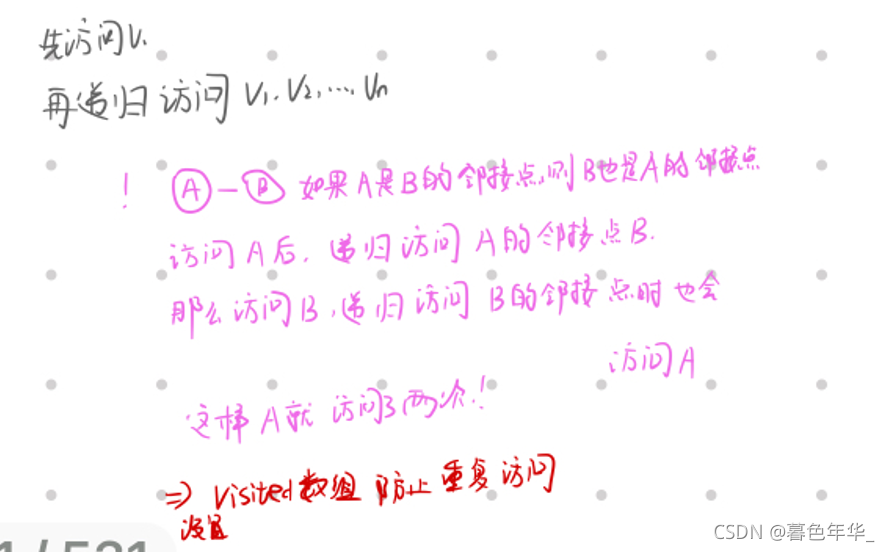 先访问V.
再递归访问 V1. V2, ... Vn
! A — B 如果A是B的邻接点,则B也是A的邻接点
访问A后, 递归访问A的邻接点B.
那么访问B,递归访问 B的邻接点时也会
访问A
这样A就 访问了两次!
=> Visited数组 防止重复访问
设置
1 / 521
CSDN @暮色年华_